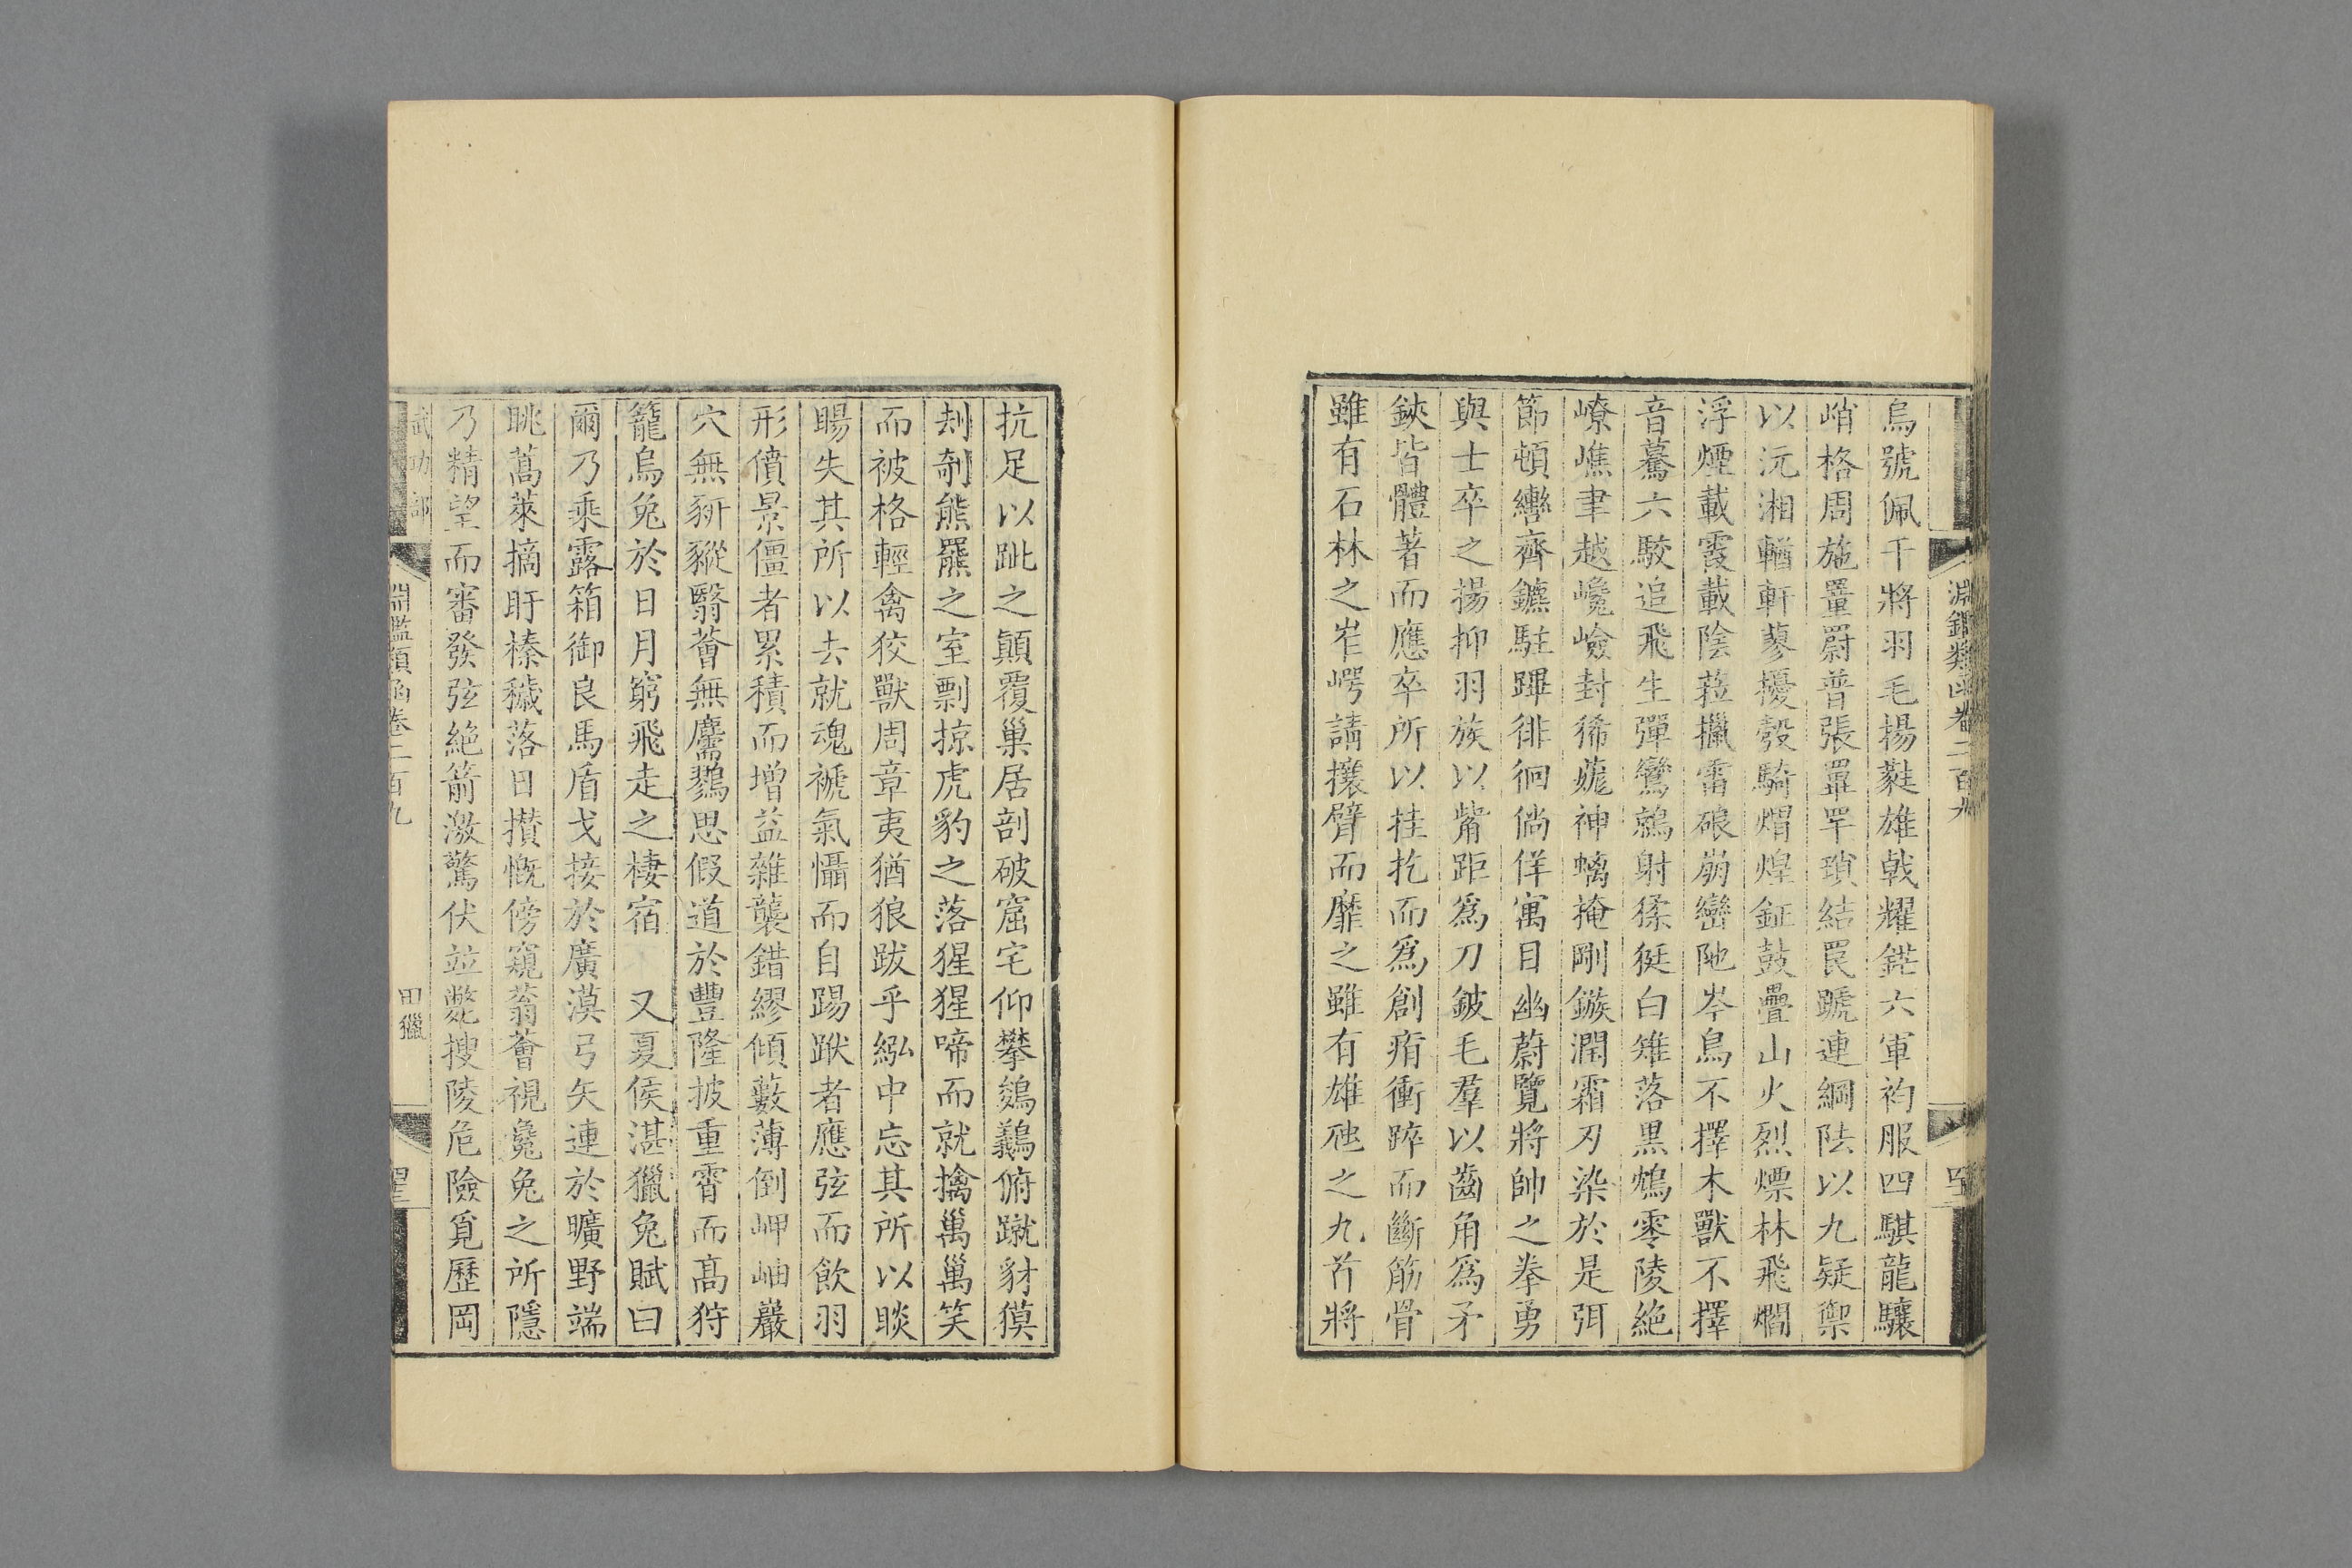 淵鑑類函卷二百九
烏號佩干將羽毛揚㲨雄戟耀鋩六軍袀服四騏龍驤
峭格周施罿罻普張罼罕瑣結罠蹏連綱阹以九疑禦
以沅湘輶軒蓼擾彀騎熠煌鉦鼓疊山火烈熛林飛爓
浮煙載霞載陰菈擸雷硠崩巒陁岑鳥不擇木獸不擇
音驀六駮追飛生彈鸞鶵射猱狿白雉落黑鴆零陵絕
嶚嶕聿越巉嶮封豨蔙神螭掩剛鏃潤霜刃染於是弭
節頓轡齊鑣駐蹕徘徊倘佯寓目幽蔚覽將帥之拳勇
與士卒之揚抑羽族以觜距爲刀鈹毛羣以齒角爲矛
鋏皆體著而應卒所以挂扢而爲創痏衝踤而斷筋骨
雖有石林之岝崿請攘臂而靡之雖有雄虺之九首將
抗足以跐之顛覆巢居剖破窟宅仰攀鵕鸃俯蹴豺獏
刦剞熊羆之室剽掠虎豹之落猩猩啼而就擒𦇫𦇫笑
而被格輕禽狡獸周章夷猶狼跋乎紭中忘其所以睒
睗失其所以去就魂褫氣懾而自踢跌者應弦而飲羽
形僨景僵者累積而增益雜襲錯繆傾藪薄倒岬岫巖
穴無豜豵翳薈無麢鷚思假道於豐隆披重霄而高狩
籠烏兔於日月窮飛走之棲宿 又夏侯湛獵兔賦曰
爾乃乘露箱御良馬盾戈接於廣漠弓矢連於曠野端
眺蒿萊摘盱榛穢落日攢慨傍窺蓊薈視毚兔之所隱
乃精望而審發弦絕箭激驚伏竝斃搜陵危險覓歷岡
武功部 淵鑑類函卷二百九 田獵